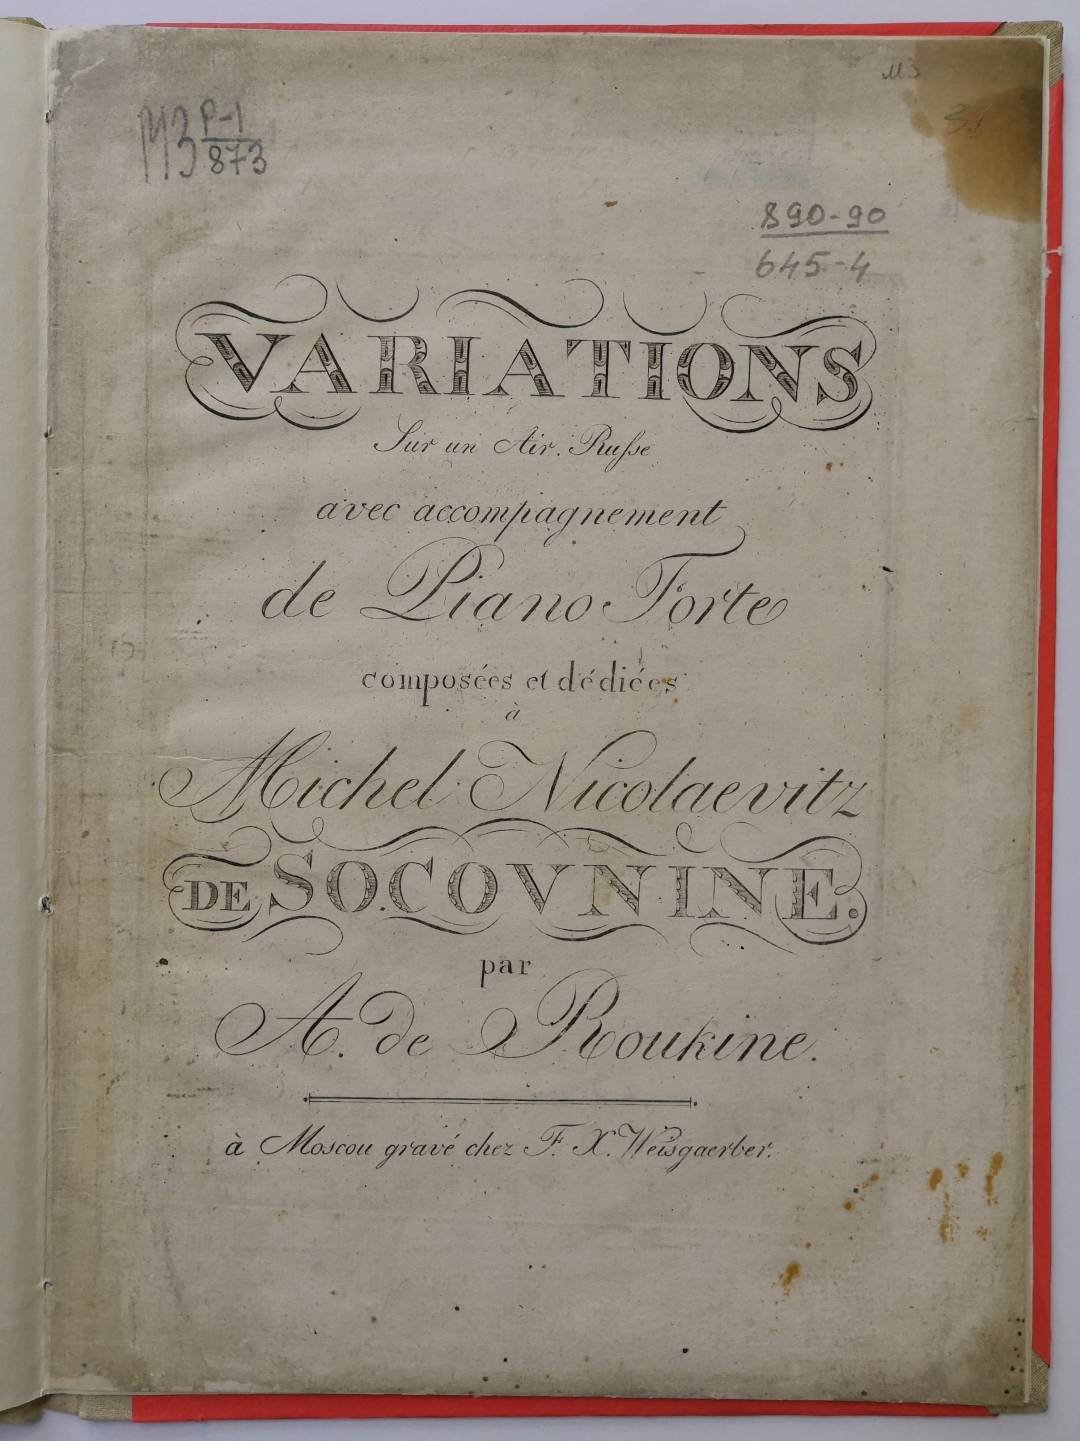 МЗ Р-1
873
МЗ
890-90
645-4
VARIATIONS
Sur un Air Russe
avec accompagnement
de Piano Forte
composées et dédiées
à
Michel Nicolaevitz
DE SOCOVNINE.
par
A. de Roukine.
à Moscou gravé chez F. X. Weisgaerber.